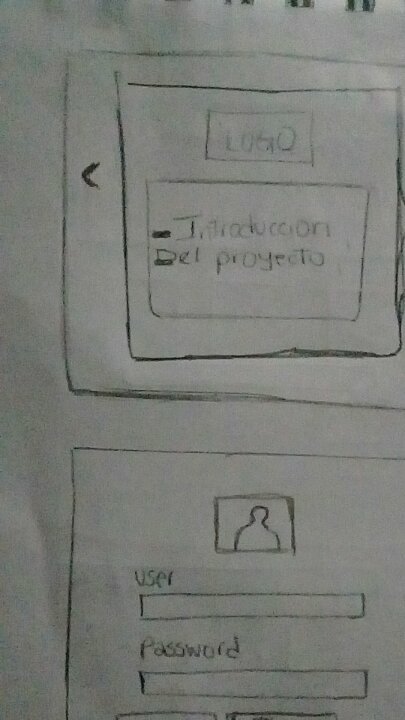 LOGO
- Introduccion
Del proyecto
User
Password